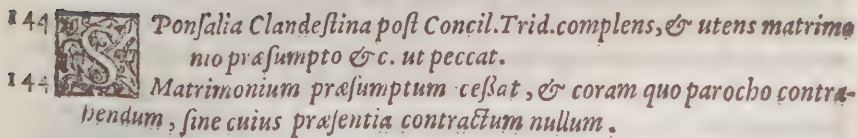 144 SPonſalia Clandeſtina poſt Concil.Trid.complens, & utens matrimo
nio præſumpto &c. ut peccat.
144 Matrimonium præſumptum ceſſat, & coram quo parocho contra-
hendum, ſine cuius præſentia contractum nullum.